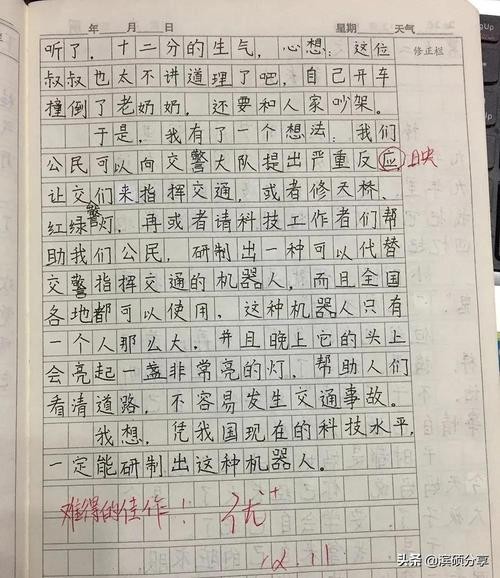 年 月 日 星期 天气
修正栏
听了，十二分的生气，心想：这位
叔叔也太不讲道理了吧，自己开车
撞倒了老奶奶，还要和人家吵架。
于是，我有了一个想法：我们
公民可以向交警大队提出严重反应，映
让交警们来指挥交通，或者修天桥、
红绿灯，再或者请科技工作者们帮
助我们公民，研制出一种可以代替
交警指挥交通的机器人，而且全国
各地都可以使用，这种机器人只有
一个人那么大，并且晚上它的头上
会亮起一盏非常亮的灯，帮助人们
看清道路，不容易发生交通事故。
我想，凭我国现在的科技水平，
一定能研制出这种机器人。
难得的佳作！优+
12.11
头条 @滨硕分享